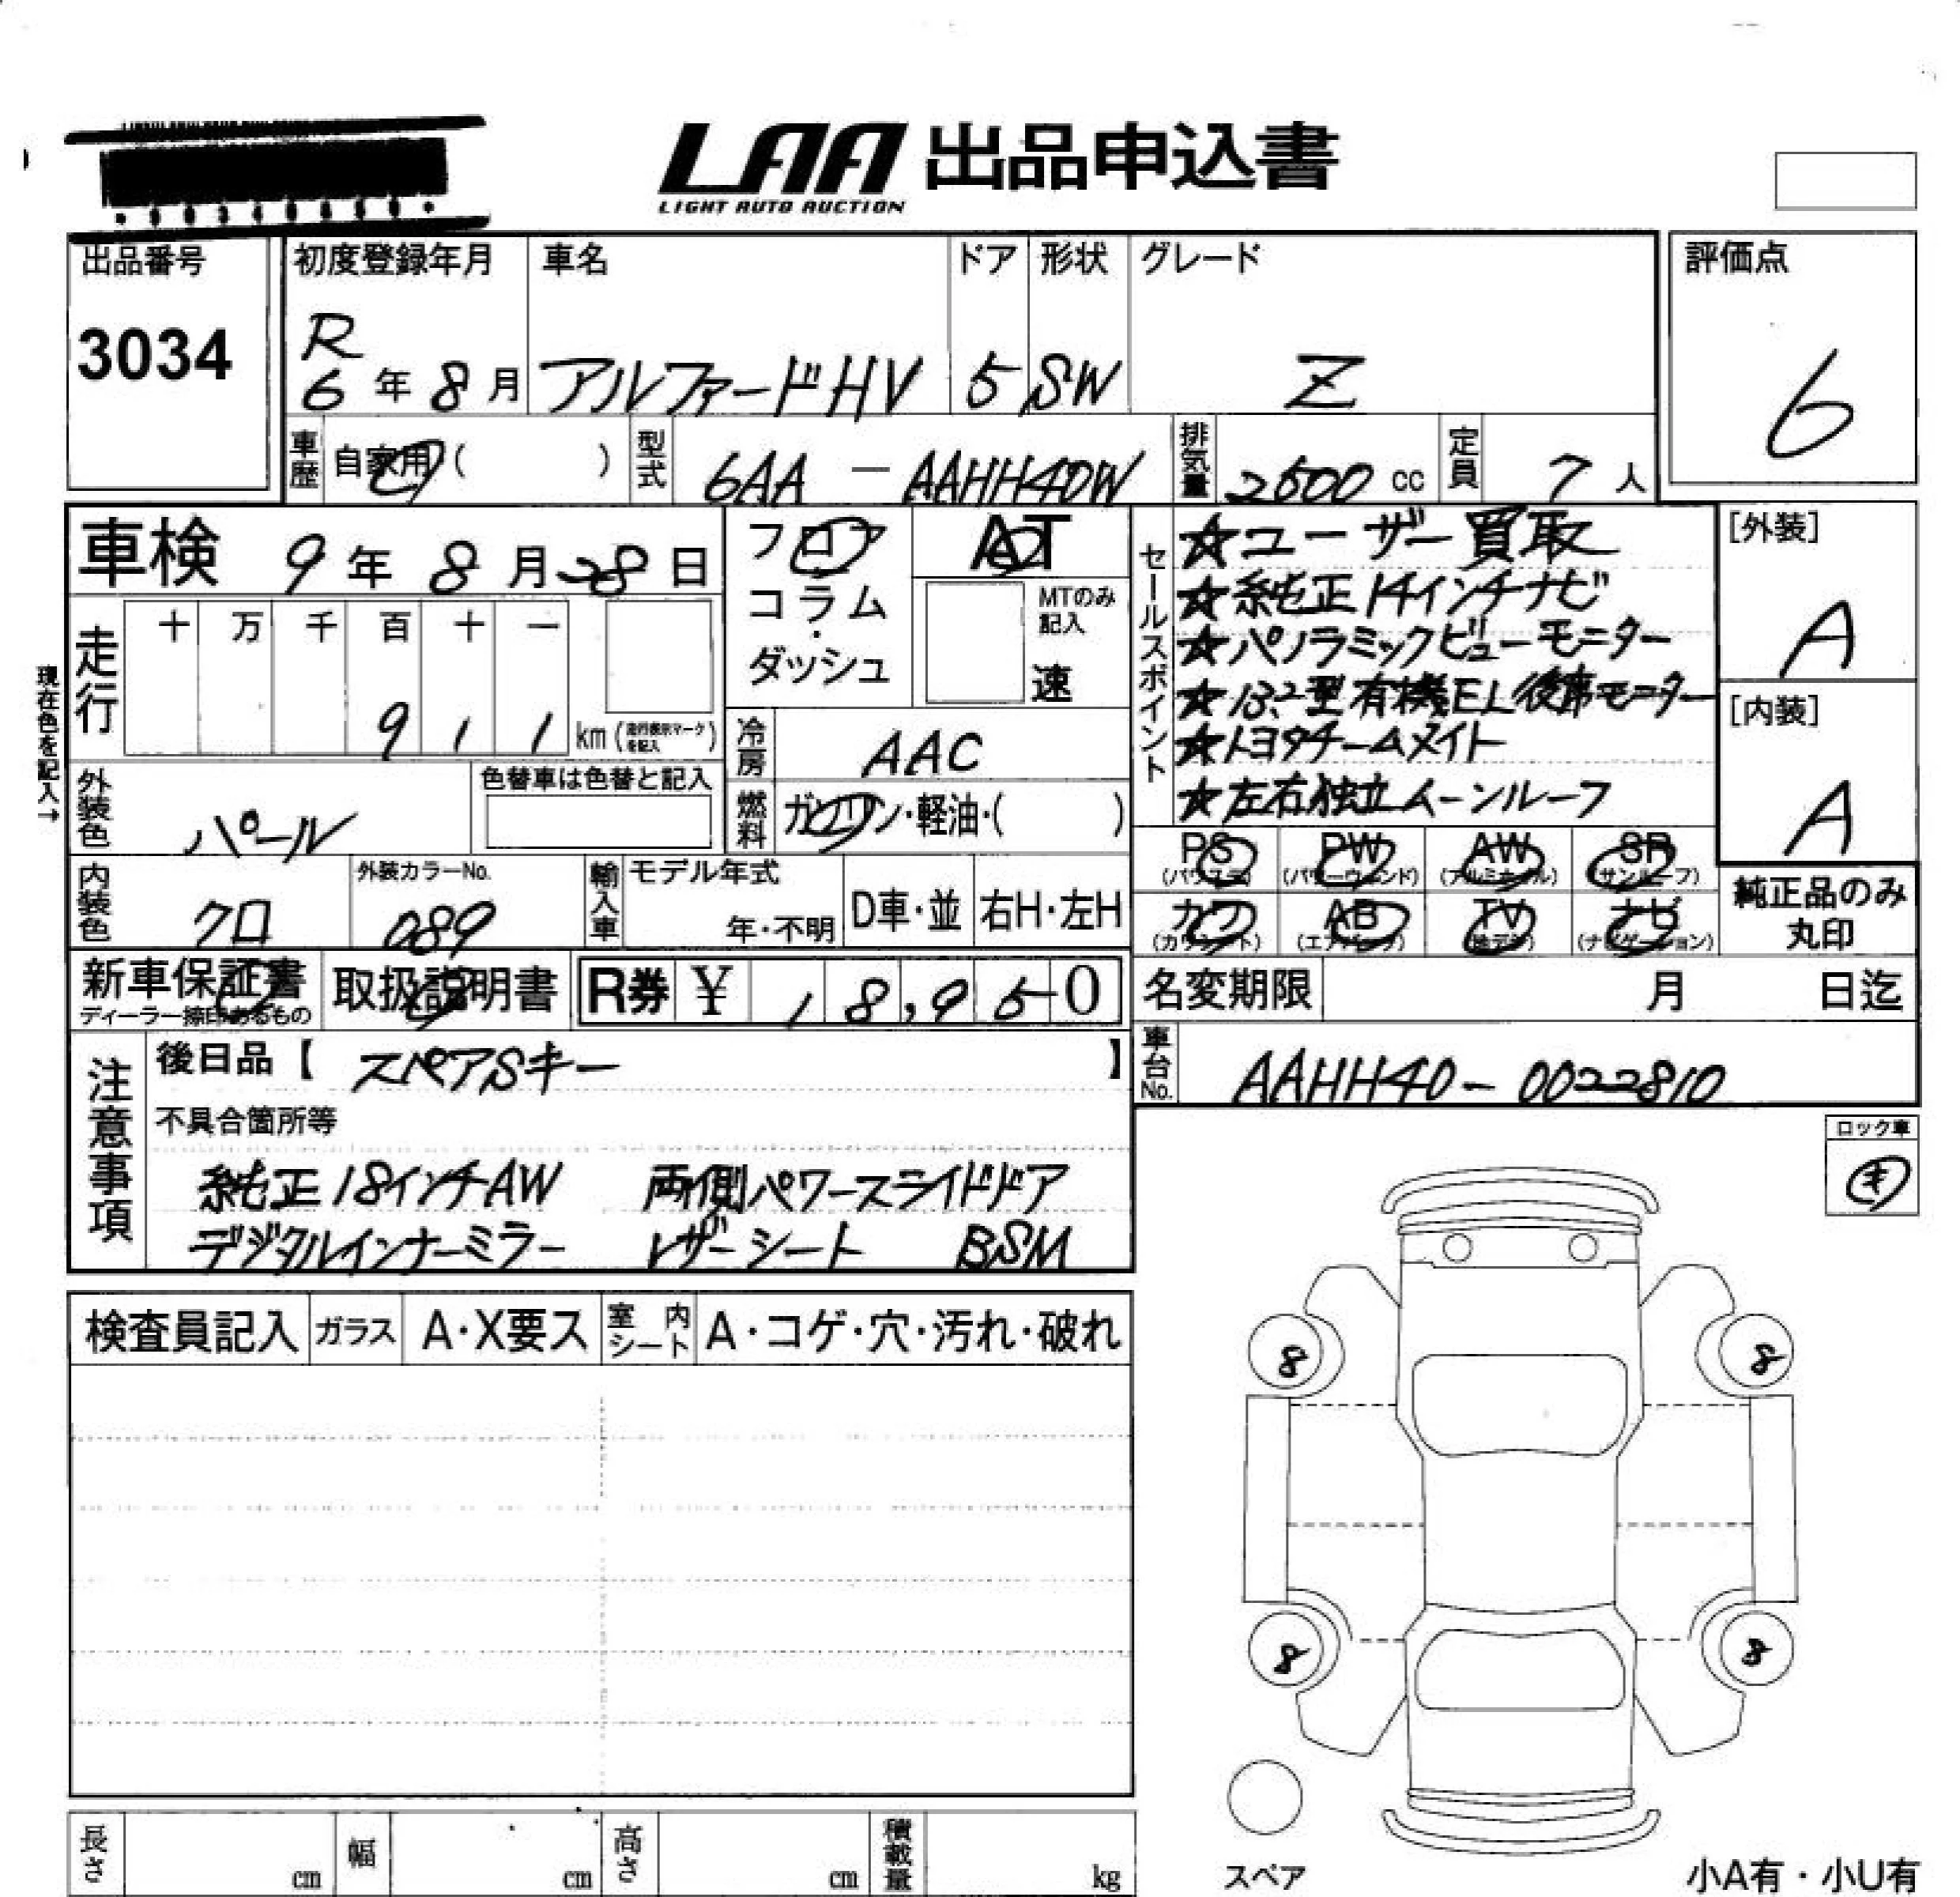 LAA 出品申込書
LIGHT AUTO AUCTION
出品番号
3034
初度登録年月
R
6年8月
車名
アルファードHV
ドア
5
形状
SW
グレード
Z
評価点
6
車歴 自家用 ( )
型式 6AA - AAHH40W
排気量 2500 cc
定員 7人
車検 9年8月28日
フロア
コラム
・
ダッシュ
AT
MTのみ
記入
速
セールスポイント
☆ユーザー買取
☆純正14インチナビ
☆パノラミックビューモニター
☆13.2型有機EL後席モニター
☆トヨタチームメイト
☆左右独立ムーンルーフ
[外装]
A
[内装]
A
現在色を記入→
走行
十 万 千 百 十 一
9 1 1 km (走行表示マークを記入)
冷房 AAC
外装色 パール
色替車は色替と記入
燃料 ガソリン・軽油・( )
内装色 クロ
外装カラーNo.
089
輸入車
モデル年式
年・不明
D車・並
右H・左H
PS
(パワステ)
PW
(パワーウィンド)
AW
(アルミホイル)
SR
(サンルーフ)
カワ
(カワシート)
AB
(エアバッグ)
TV
(地デジ)
ナビ
(ナビゲーション)
純正品のみ
丸印
新車保証書
ディーラー捺印あるもの
取扱説明書
R券 ¥ 18,950
名変期限 月 日迄
注意事項
後日品【 スペアSキー 】
不具合箇所等
純正18インチAW 両側パワースライドドア
デジタルインナーミラー レザーシート BSM
車台No. AAHH40-0022810
ロック車
キ
検査員記入
ガラス A・X要ス
室内シート A・コゲ・穴・汚れ・破れ
8 8
8 8
スペア
長さ cm
幅 cm
高さ cm
積載量 kg
小A有・小U有